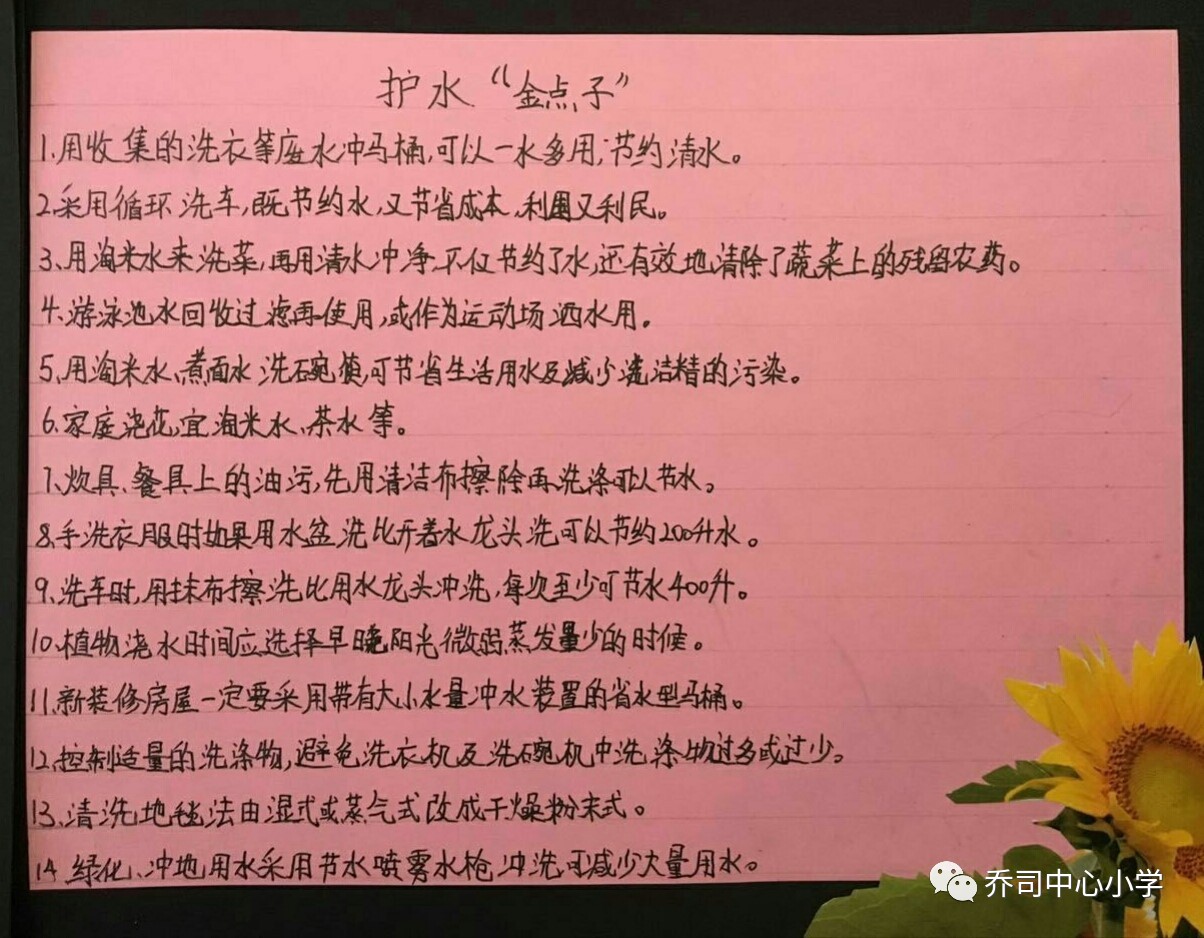 护水“金点子”
1.用收集的洗衣等废水冲马桶,可以一水多用,节约清水。
2.采用循环洗车,既节约水,又节省成本,利国又利民。
3、用淘米水来洗菜,再用清水冲净,不仅节约了水,还有效地清除了蔬菜上的残留农药。
4、游泳池水回收过滤再使用,或作为运动场洒水用。
5、用淘米水、煮面水洗碗筷,可节省生活用水及减少洗洁精的污染。
6、家庭浇花,宜淘米水、茶水等。
7、炊具、餐具上的油污,先用清洁布擦除再洗涤可以节水。
8、手洗衣服时如果用水盆洗比开着水龙头洗可以节约200升水。
9、洗车时,用抹布擦洗比用水龙头冲洗,每次至少可节水400升。
10、植物浇水时间应选择早晚阳光微弱蒸发量少的时候。
11、新装修房屋一定要采用带有大小水量冲水装置的省水型马桶。
12、控制适量的洗涤物,避免洗衣机及洗碗机中洗涤物过多或过少。
13、清洗地毯法由湿式或蒸气式改成干燥粉末式。
14、绿化、冲地用水采用节水喷雾水枪冲洗可减少大量用水。
乔司中心小学